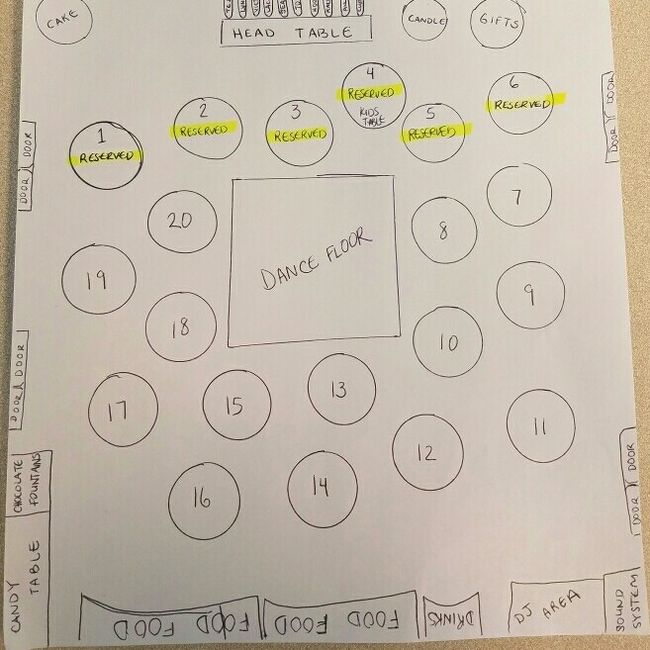 CAKE
HEAD TABLE
CANDLE
GIFTS
1
RESERVED
2
RESERVED
3
RESERVED
4
RESERVED
KIDS
TABLE
5
RESERVED
6
RESERVED
DOOR
DOOR
DOOR
DOOR
7
20
8
DANCE FLOOR
19
9
18
10
17
15
13
11
12
16
14
CHOCOLATE
FOUNTAINS
DOOR
DOOR
CANDY
TABLE
FOOD FOOD
FOOD FOOD FOOD
DRINKS
DJ AREA
SOUND
SYSTEM
DOOR
DOOR